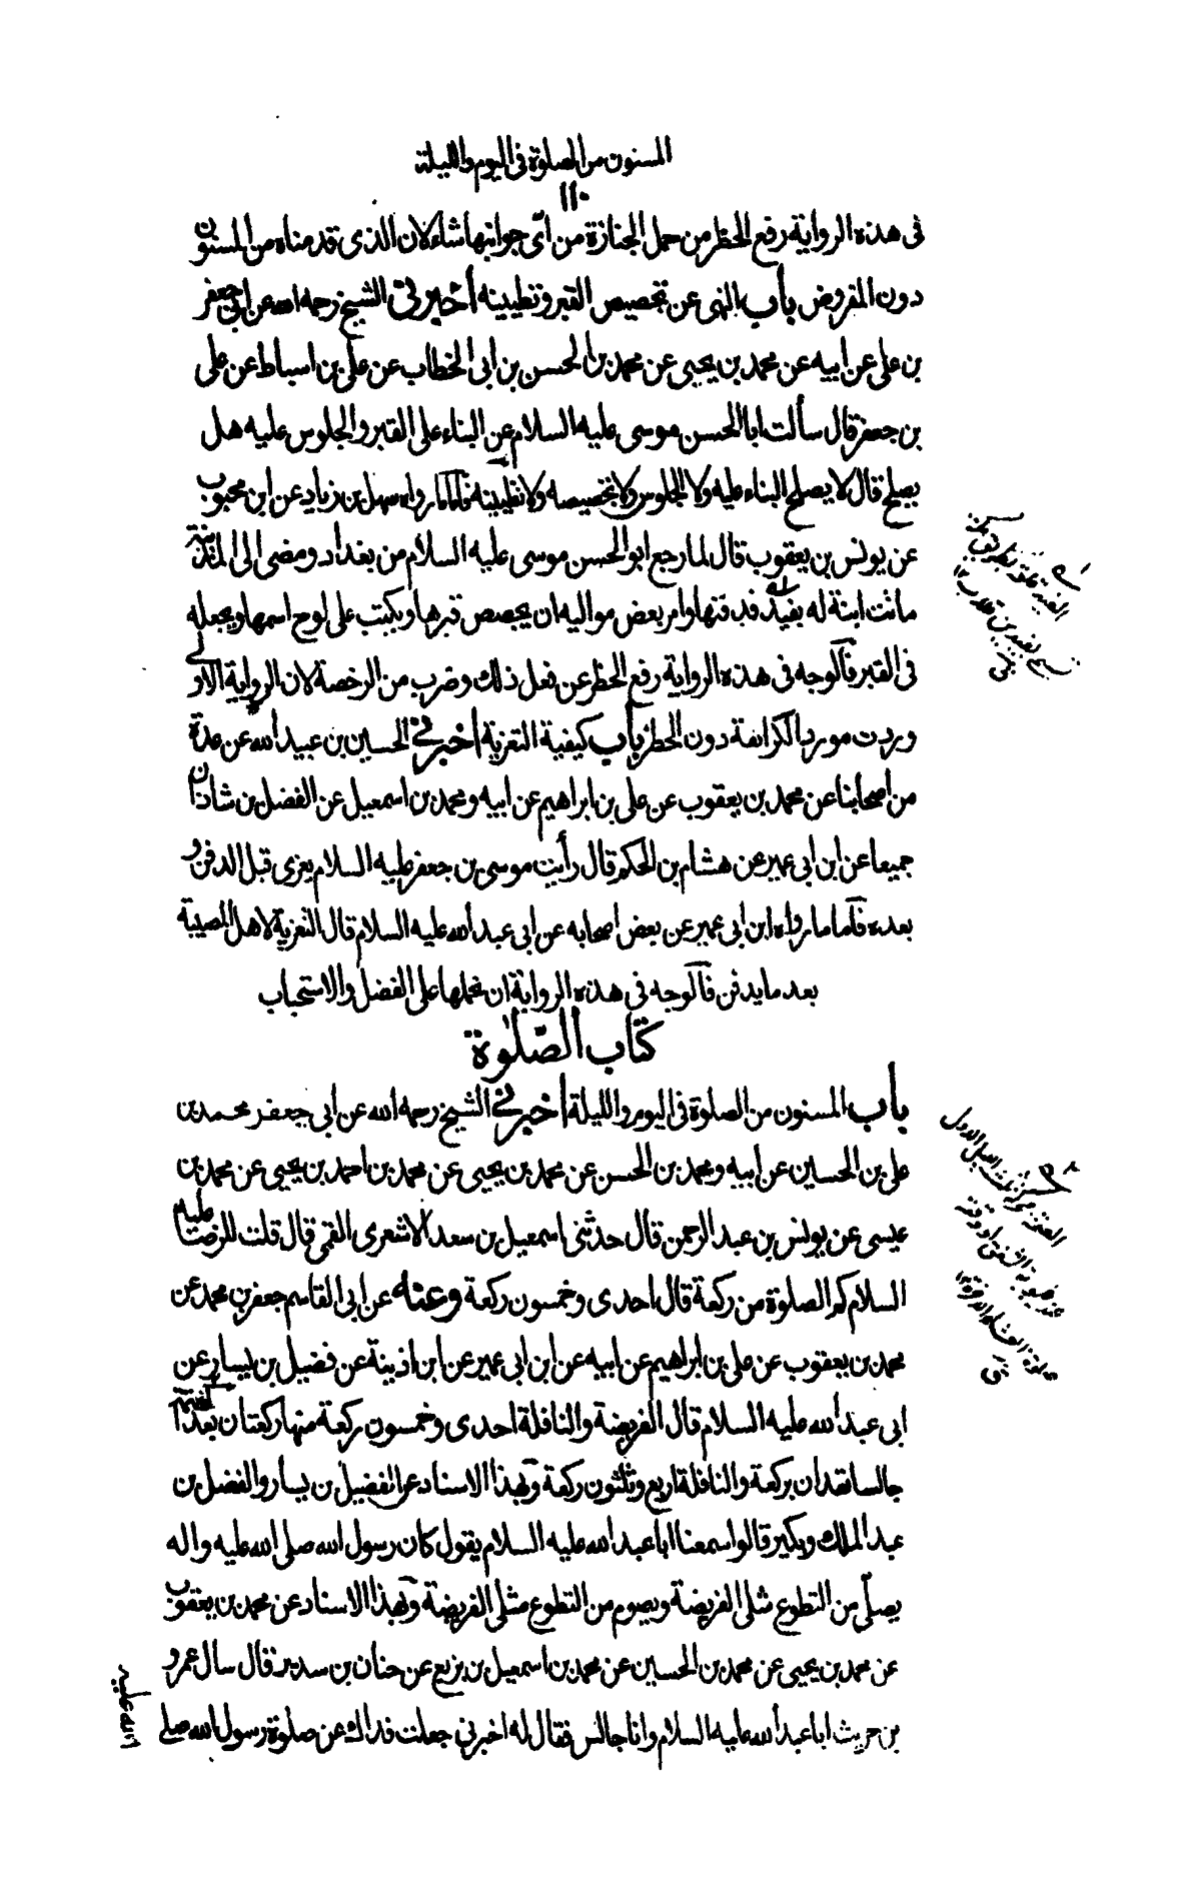 المسنون من الصلوة فى اليوم والليلة
١١٠
فى هذه الرواية رفع الحظر من حمل الجنازة من اىّ جوانبها شاء لان الذى قدمناه من المسنون
دون المفروض باب النهى عن تجصيص القبر وتطيينه أخبرنى الشيخ رحمه الله عن ابى جعفر
بن على عن ابيه عن محمد بن يحيى عن محمد بن الحسن بن ابى الخطاب عن على بن اسباط عن على
بن جعفر قال سألت ابا الحسن موسى عليه السلام عن البناء على القبر والجلوس عليه هل
يصلح قال لا يصلح البناء عليه ولا الجلوس ولا تجصيصه ولا تطيينه فاما ما رواه سهل بن زياد عن ابن محبوب
عن يونس بن يعقوب قال لما رجع ابو الحسن موسى عليه السلام من بغداد ومضى الى المدينة
ماتت ابنة له بفيد فدفنها وامر بعض مواليه ان يجصص قبرها ويكتب على لوح اسمها ويجعله
فى القبر فالوجه فى هذه الرواية رفع الحظر عن فعل ذلك وضرب من الرخصة لان الرواية الاولى
وردت مورد الكراهة دون الحظر باب كيفية التعزية أخبرنى الحسين بن عبيد الله عن عدة
من اصحابنا عن محمد بن يعقوب عن على بن ابراهيم عن ابيه ومحمد بن اسمعيل عن الفضل بن شاذان
جميعا عن ابن ابى عمير عن هشام بن الحكم قال رأيت موسى بن جعفر عليه السلام يعزى قبل الدفن و
بعده فاما ما رواه ابن ابى عمير عن بعض اصحابه عن ابى عبد الله عليه السلام قال التعزية لاهل المصيبة
بعد ما يدفن فالوجه فى هذه الرواية ان نحملها على الفضل والاستحباب
كتاب الصّلوة
باب المسنون من الصلوة فى اليوم والليلة أخبرنى الشيخ رحمه الله عن ابى جعفر محمد بن
على بن الحسين عن ابيه ومحمد بن الحسن عن محمد بن يحيى عن محمد بن احمد بن يحيى عن محمد بن
عيسى عن يونس بن عبد الرحمن قال حدثنى اسمعيل بن سعد الاشعرى القمى قال قلت للرضا عليه
السلام كم الصلوة من ركعة قال احدى وخمسون ركعة وعنه عن ابى القاسم جعفر بن محمد عن
محمد بن يعقوب عن على بن ابراهيم عن ابيه عن ابن ابى عمير عن ابن اذينة عن فضيل بن يسار عن
ابى عبد الله عليه السلام قال الفريضة والنافلة احدى وخمسون ركعة منها ركعتان بعد العتمة
جالسا تعدان بركعة والنافلة اربع وثلثون ركعة وبهذا الاسناد عن الفضيل بن يسار والفضل بن
عبد الملك وبكير قالوا سمعنا ابا عبد الله عليه السلام يقول كان رسول الله صلى الله عليه واله
يصلّى من التطوع مثلى الفريضة ويصوم من التطوع مثلى الفريضة وبهذا الاسناد عن محمد بن يعقوب
عن محمد بن يحيى عن محمد بن الحسين عن محمد بن اسمعيل بن بزيع عن حنان بن سدير قال سال عمرو
بن حريث ابا عبد الله عليه السلام وانا جالس فقال له اخبرنى جعلت فداك عن صلوة رسول الله صلى
الله عليه